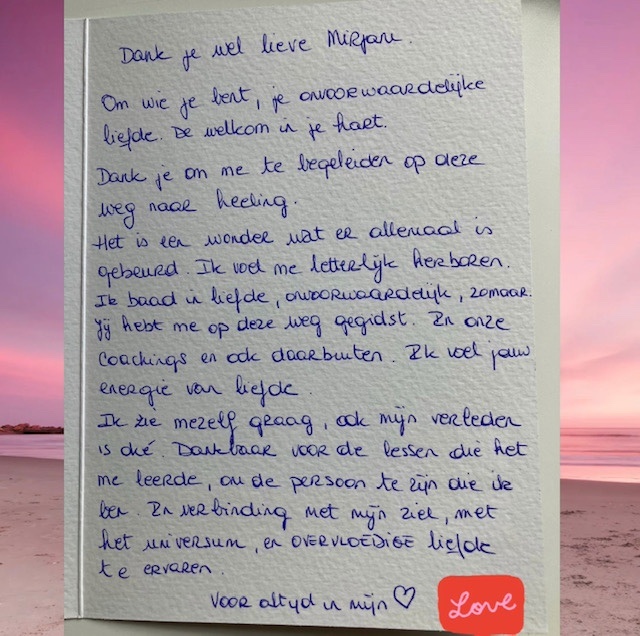 Dank je wel lieve Mirjam.
Om wie je bent, je onvoorwaardelijke
liefde. De welkom in je hart.
Dank je om me te begeleiden op deze
weg naar heeling.
Het is een wonder wat er allemaal is
gebeurd. Ik voel me letterlijk herboren.
Ik baad in liefde, onvoorwaardelijk, zomaar.
Jij hebt me op deze weg gegidst. In onze
coachings en ook daarbuiten. Ik voel jouw
energie van liefde.
Ik zie mezelf graag, ook mijn verleden
is oké. Dankbaar voor de lessen die het
me leerde, om de persoon te zijn die ik
ben. In verbinding met mijn ziel, met
het universum, en OVERVLOEDIGE liefde
te ervaren.
Voor altyd in mijn ♡
Love